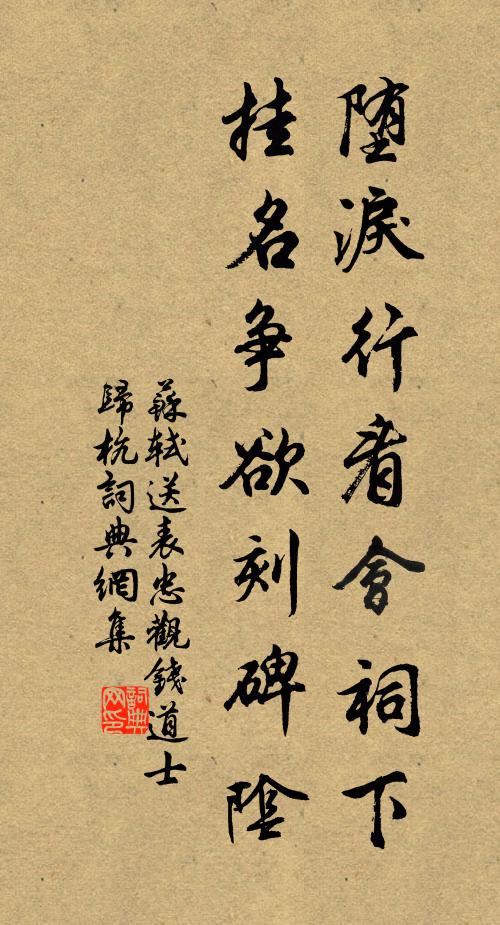 堕淚行看會祠下
挂名爭欲刻碑陰
蘇軾送表忠觀錢道士
歸杭詞典網集
詞典网印